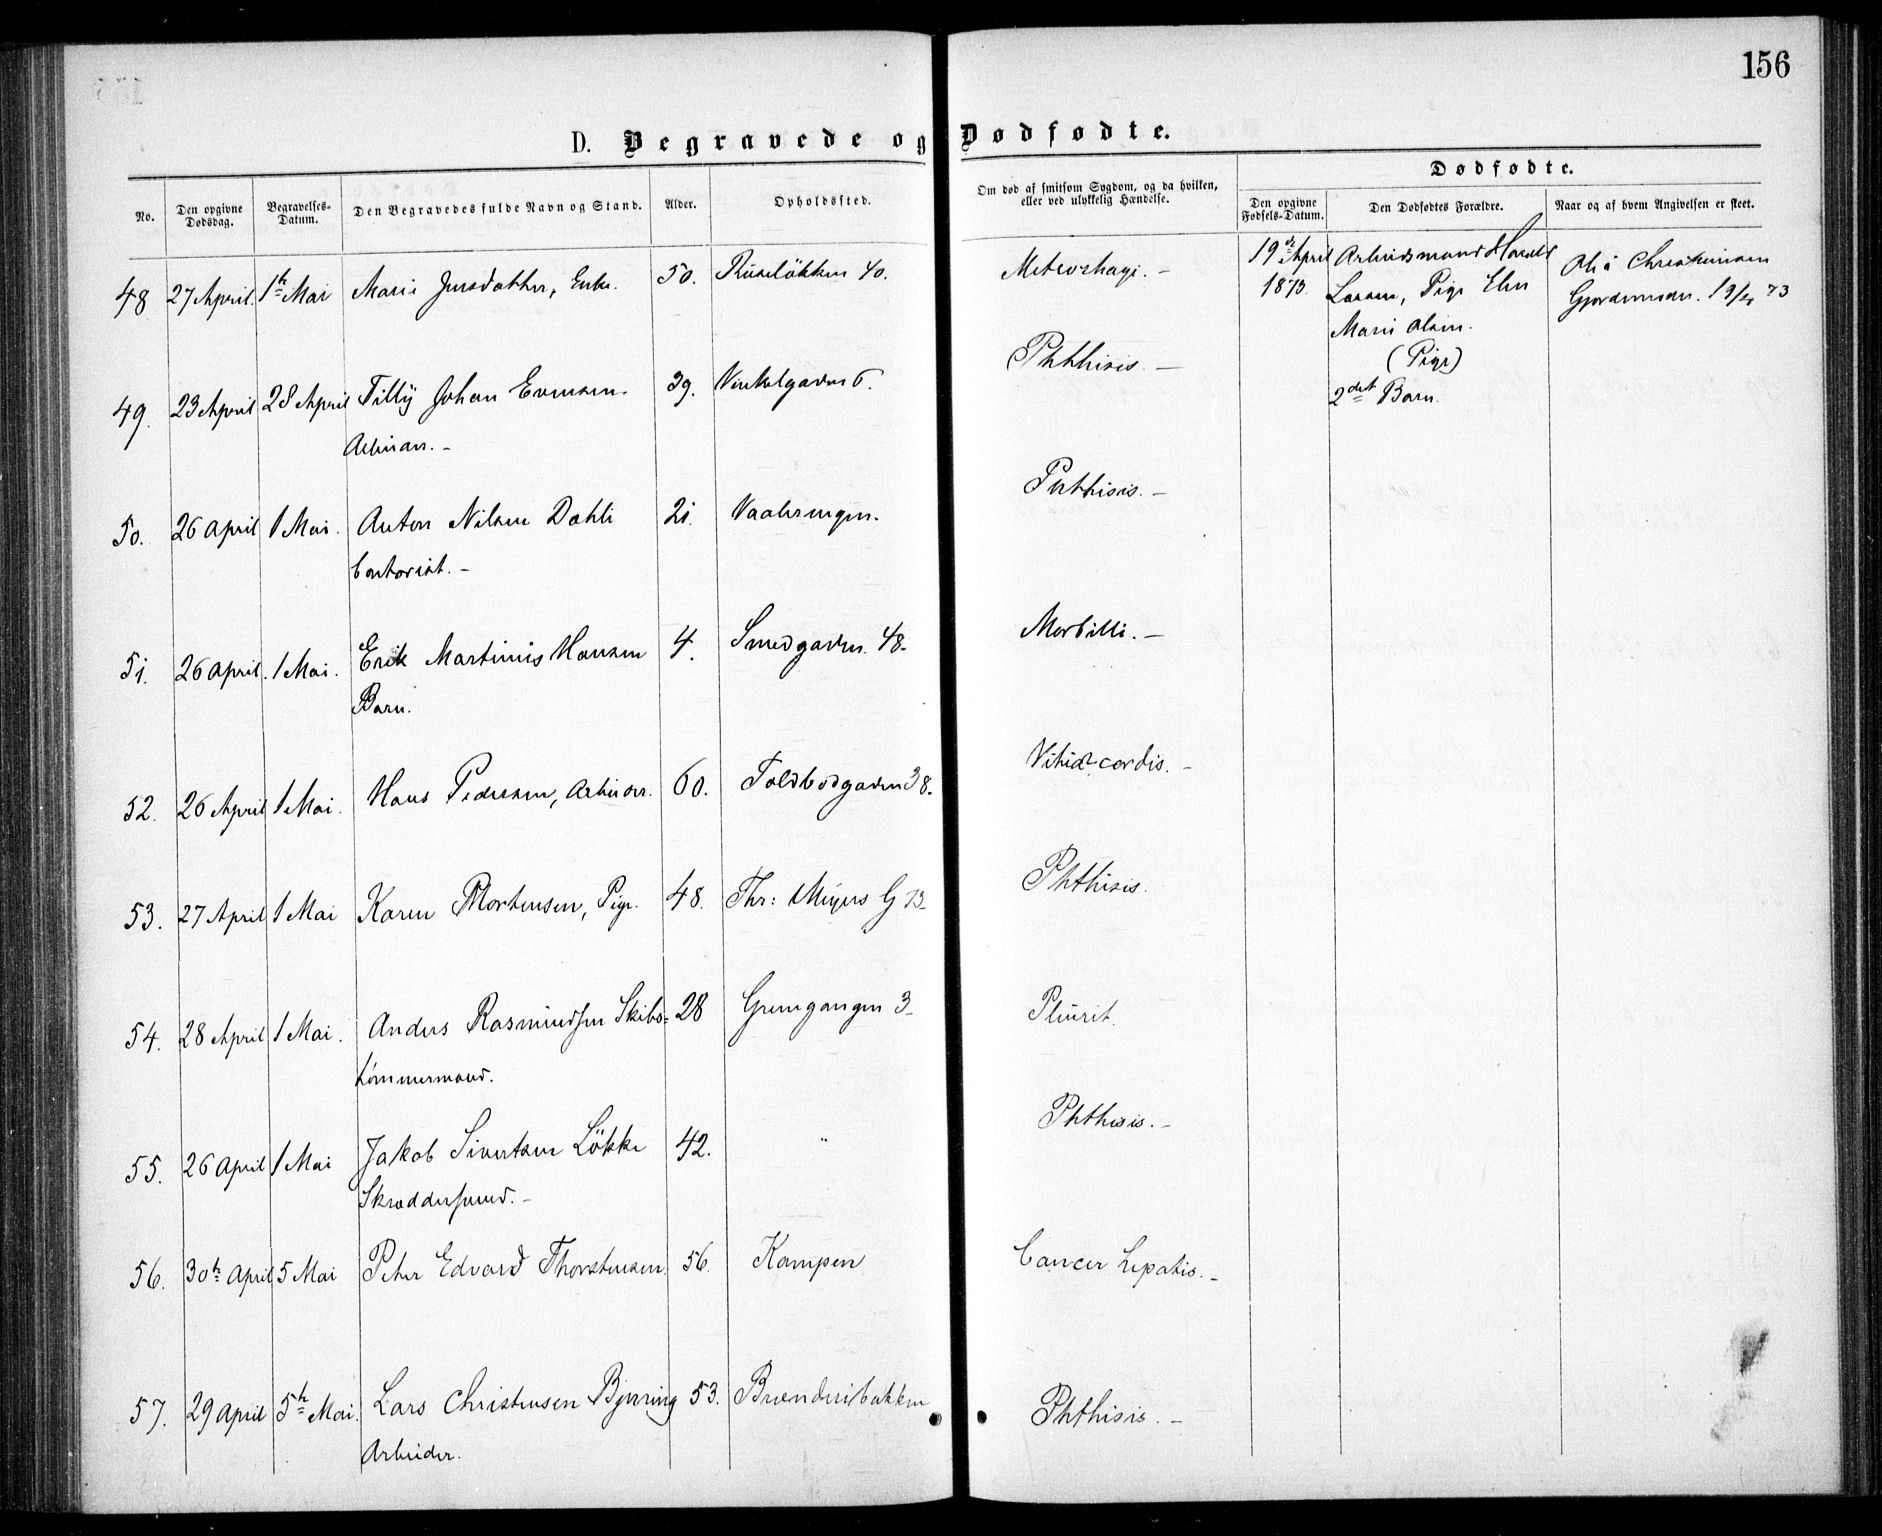 156
D. Begravede og Dødfødte.
No. Den opgivne Dødsdag. Begravelses-Datum. Den Begravedes fulde Navn og Stand. Alder. Opholdssted. Om død af smitsom Sygdom, og da hvilken, eller ved ulykkelig Hændelse.
Dødfødte.
Den opgivne Fødsels-Datum. Den Dødfødtes Forældre. Naar og af hvem Angivelsen er skeet.
48 27 April. 1 Mai Marie Jensdatter, Enke. 50. Ruseløkken 40. Metrorhagi. –
49. 23 April 28 April Tilly Johan Evensen. 39. Vinkelgaden 6. Phthisis. –
Arbeider. –
50. 26 April 1 Mai. Anton Nilsen Dahli 21. Vaalerengen. Phthisis. –
Contorist. –
51. 26 April. 1 Mai. Erik Martinius Hansen 4. Smedgaden 48. Morbilli. –
Barn.
52. 26 April 1 Mai. Hans Pedersen, Arbeider. 60. Toldbodgaden 38. Vitia cordis. –
53. 27 April 1 Mai Karen Mortensen, Pige. 48. Thv: Meyers G 73 Phthisis.
54. 28 April 1 Mai. Anders Rasmussen Skibs= 28 Grensgangen 3 Pleurit.
tømmermand.
55. 26 April 1 Mai Jakob Sivertsen Løkke 42. " Phthisis. –
Skræddersvend. –
56. 30 April 5 Mai Peter Edvard Thorstensen 56. Kampen Cancer hepatis. –
57. 29 April 5 Mai. Lars Christensen Bjerring 53. Brænderibakken Phthisis. –
Arbeider.
19 April 1873. Arbeidsmand Harald
Larsen, Pige Elen
Marie Olsen.
(Pige)
2det Barn.
Christensen
Gjordemoder. 19/4 73